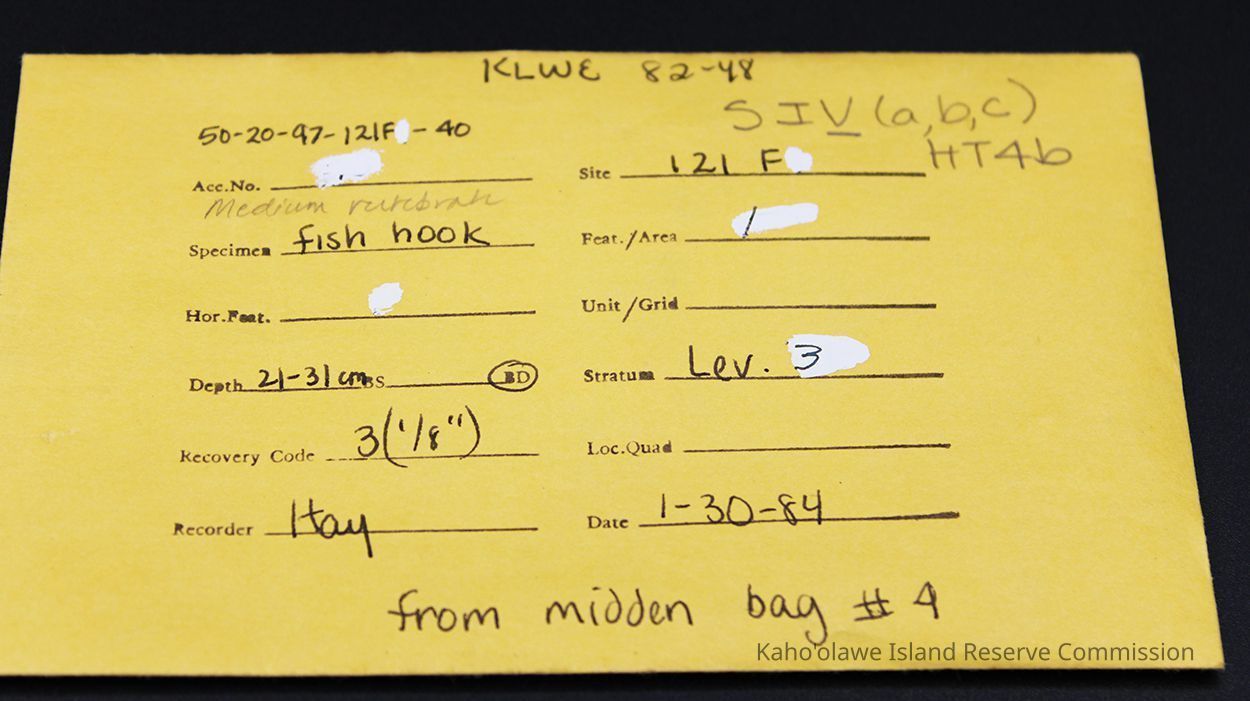 KLWE 82-48
S I V (a,b,c)
HT4b
50-20-97-121F -40
Acc.No.
Site 121 F
Medium vertebrate
Specimen fish hook
Feat./Area /
Hor.Feat.
Unit/Grid
Depth 21-31 cm BS BD
Stratum Lev. 3
Recovery Code 3(1/8")
Loc.Quad
Recorder Hay
Date 1-30-84
from midden bag # 4
Kaho'olawe Island Reserve Commission